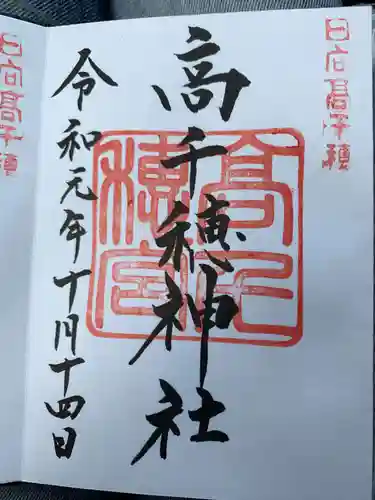 日向高千穂
高千穂神社
令和元年十月十四日
日向高千穂